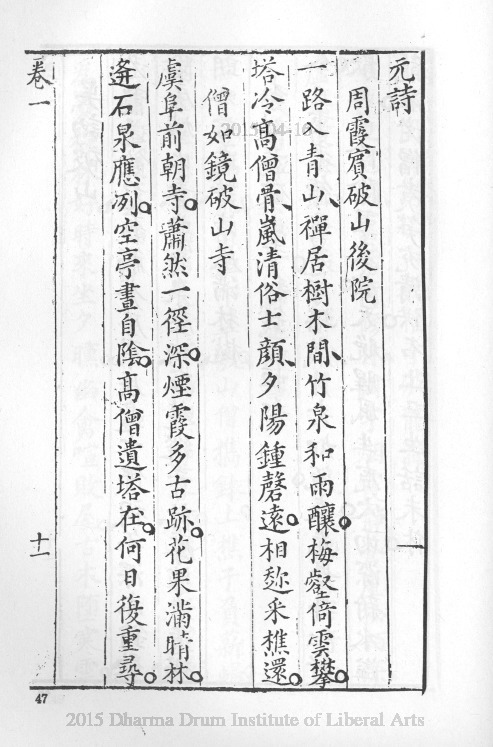 元詩
周霞賓破山後院
一路入青山、禪居樹木間、竹泉和雨釀。梅壑倚雲攀。
塔冷高僧骨、嵐清俗士顏、夕陽鍾磬遠。相𨒪采樵還。
僧如鏡破山寺
虞阜前朝寺。蕭然一徑深。煙霞多古跡。花果滿晴林。
逰石泉應冽。空亭晝自陰。高僧遺塔在。何日復重尋。
卷一
十一
47
2015-04-16
2015 Dharma Drum Institute of Liberal Arts